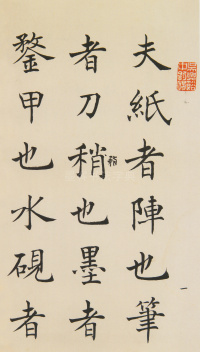 夫紙者陣也筆
者刀稍也墨者
鍪甲也水硯者
一